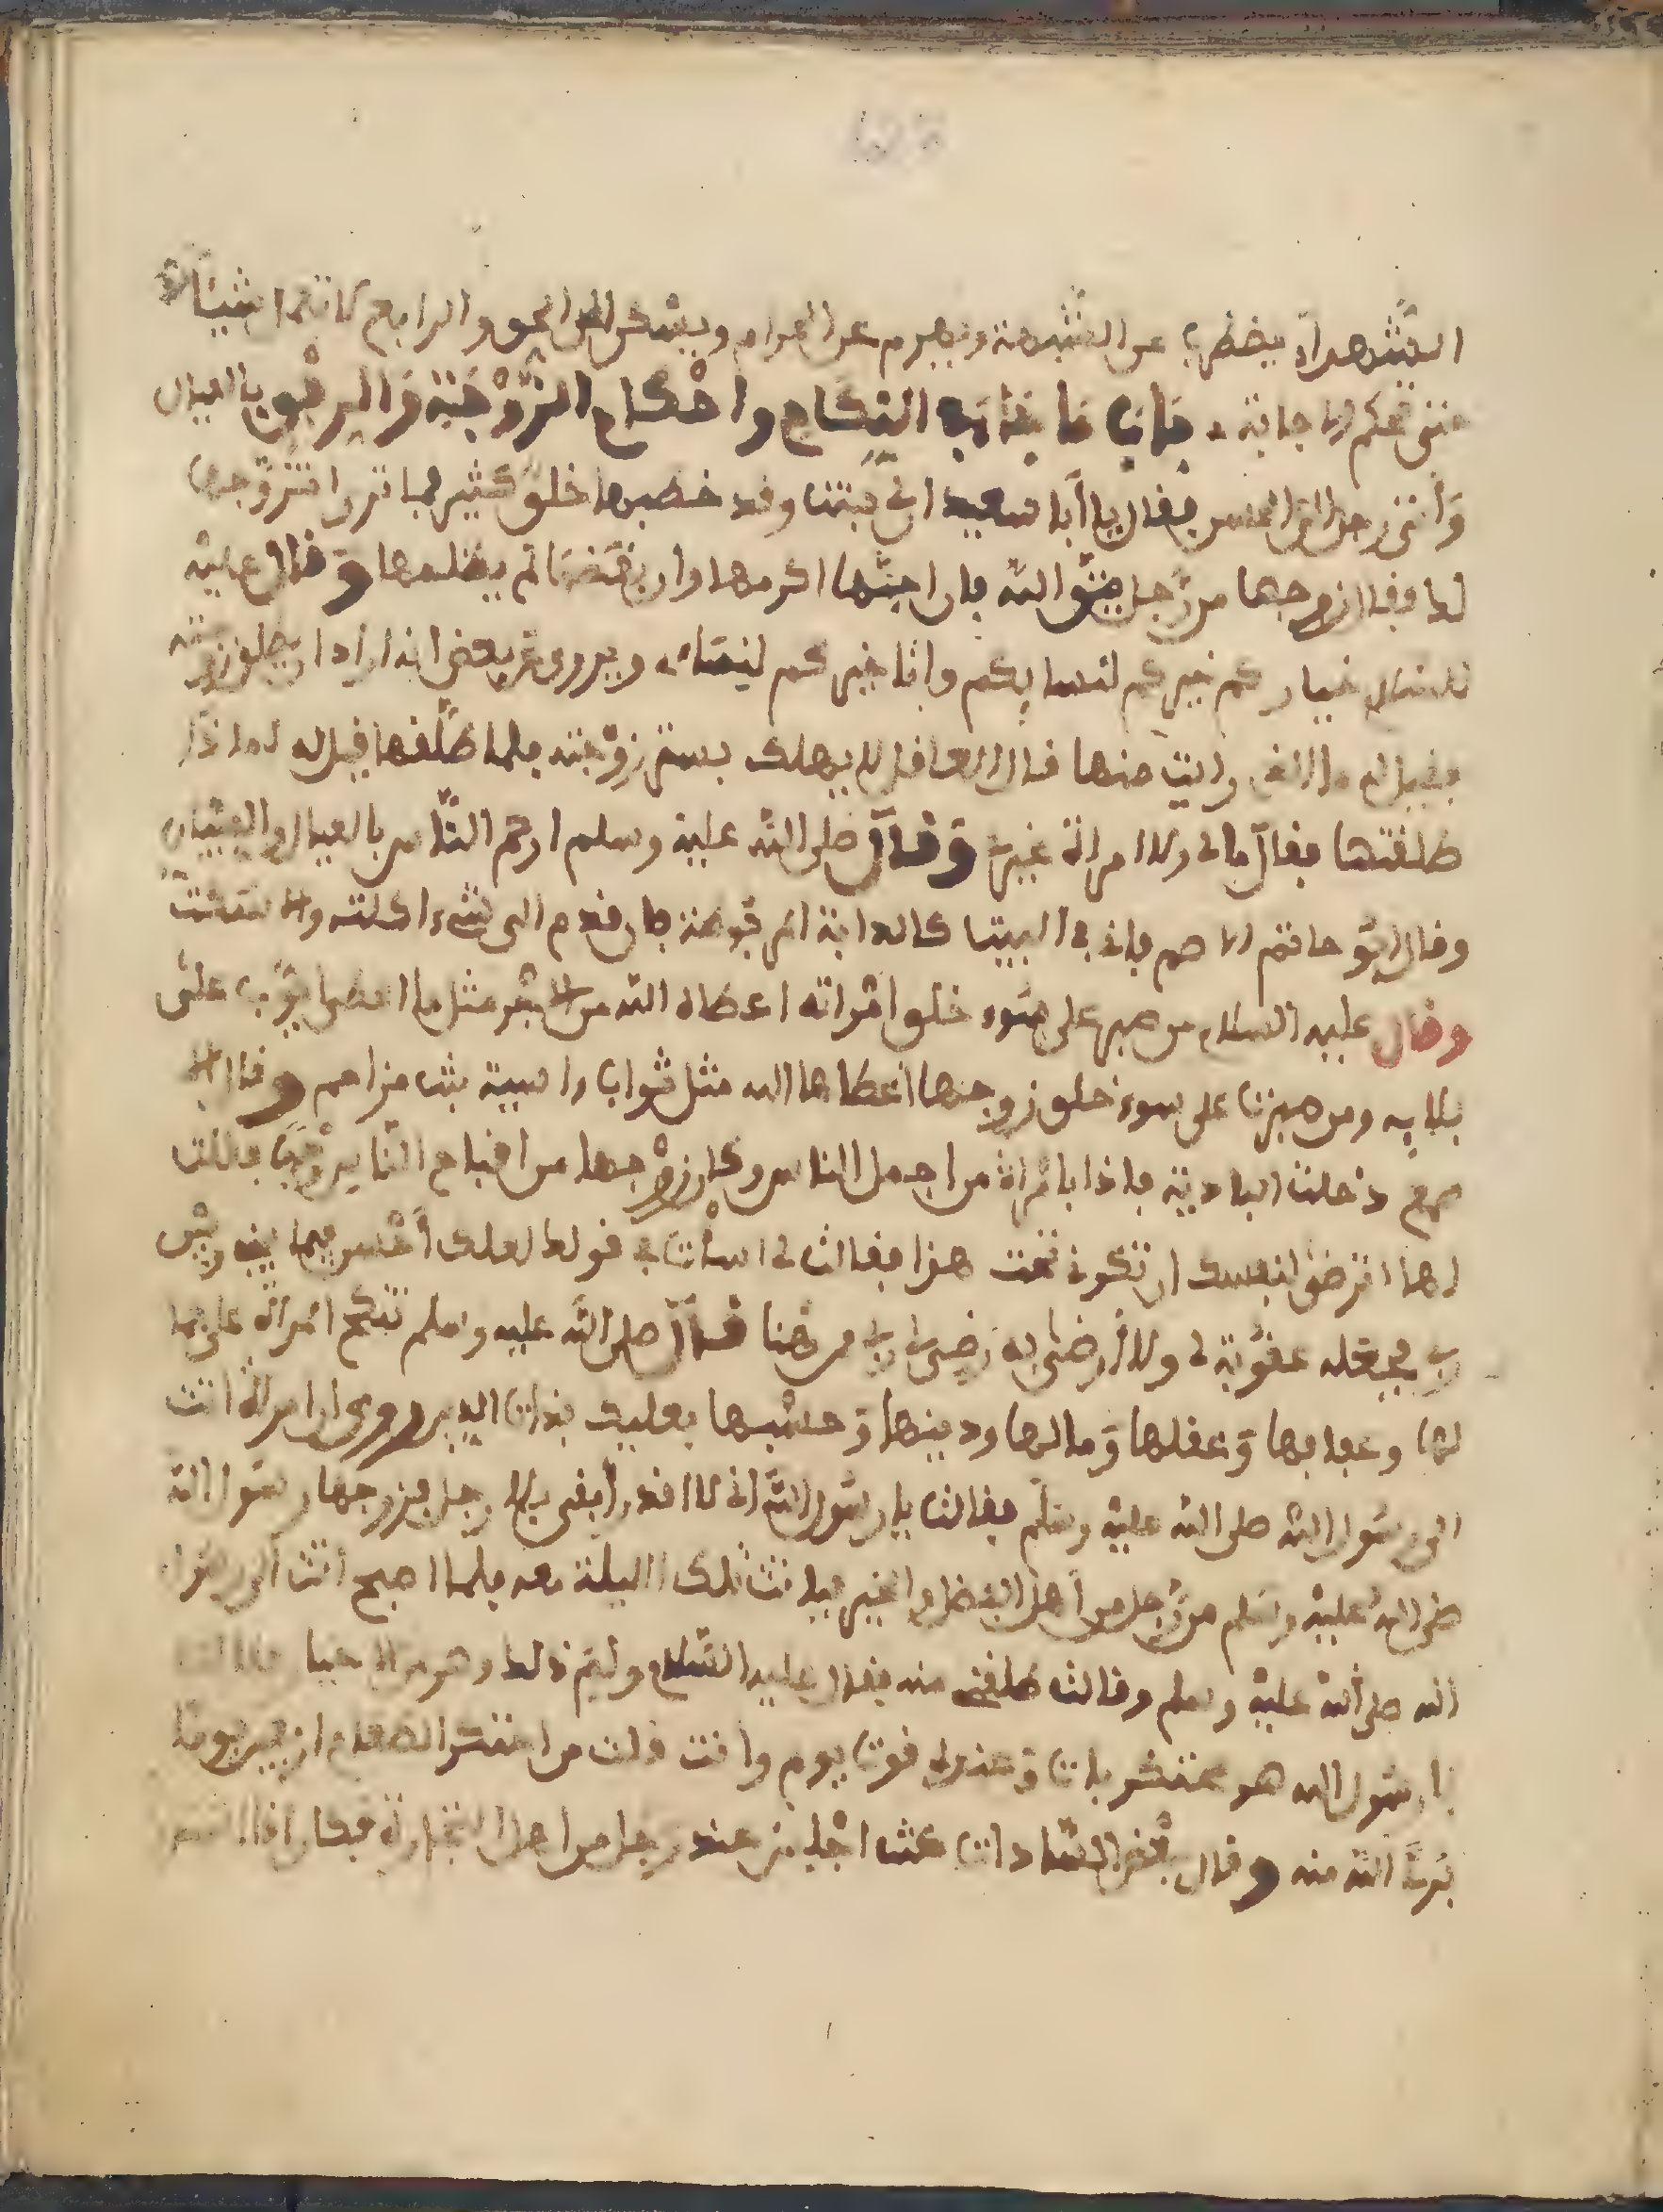 الشهداء يغضب عن الشبهة ويصوم عن الحرام ويسكن الى الحق والرابع كاتما شيئا
حتى تعلم الاجابة باب ما جاء في النكاح واحكام الزوجية والرفق بالعيال
وأتى رجل الى الحسن فقال يا أبا سعيد ان لي بنتا وقد خطبها خلق كثير فما ترى انزوجها
له فقال زوجها من رجل يتق الله فان احبها اكرمها وان بغضها لم يظلمها وقال عليه
السلام خياركم خيركم لنسائكم وانا خيركم لنسائي ويروى عن بعض انه اراد ان يطلق زوجته
فقيل له ما الذي رايت منها قال العاقل لا يهتك ستر زوجته فلما طلقها قيل له لماذا
طلقتها فقال ما لي ولامرأة غيري وقال صلى الله عليه وسلم ارحم الناس بالعيال والصبيان
وقال ابو حاتم الاصم فاني في البيت كالدابة المربوطة فان قدم الي شيء اكلته والا سكتت
وقال عليه السلام من صبر على سوء خلق امرأته اعطاه الله من الاجر مثل ما اعطى ايوب على
بلايه ومن صبرت على سوء خلق زوجها اعطاها الله مثل ثواب راسية بنت مزاحم وقال الا
صمعي دخلت البادية فاذا بامرأة من اجمل الناس وكان زوجها من اقباح الناس وجها فقلت
لها اترضى لنفسك ان تكوني تحت هذا فقالت لي اسأت في قولك لعلك أحسن فيما بينه وبين
ربي فجعله عقوبة لي ولا أرضى به رضي ربي من هنا قال صلى الله عليه وسلم تنكح امرأة على جما
لها وعفافها وعقلها ومالها ودينها وحسبها فعليك بذات الدين وروي ان امرأة اتت
الى رسول الله صلى الله عليه وسلم فقالت يا رسول الله اني لا اقدر أبقى بلا رجل فزوجها رسول الله
صلى الله عليه وسلم من رجل من أهل الفضل والخير فباتت تلك الليلة معه فلما اصبح اتت الى رسول
الله صلى الله عليه وسلم وقالت طلقني منه فقال عليه السلام ولم ذلك وهو من
يا رسول الله هو محتكر بات وعنده قوت يوم وانت قلت من احتكر الطعام اربعين يوما
برئ الله منه وقال بعض السادات كنت اجلس عند رجل من اهل التجارة فكان اذا